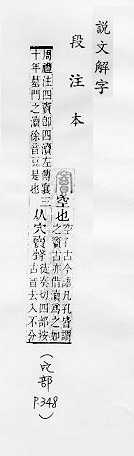 說文解字
段注本
空也
空孔古今語凡孔皆謂
之竇古亦借瀆爲之如
周禮注四竇卽四瀆左傳襄三
十年墓門之瀆徐音豆是也
从穴賣聲
徒奏切四部按
古音去入不分
(穴部
P348)